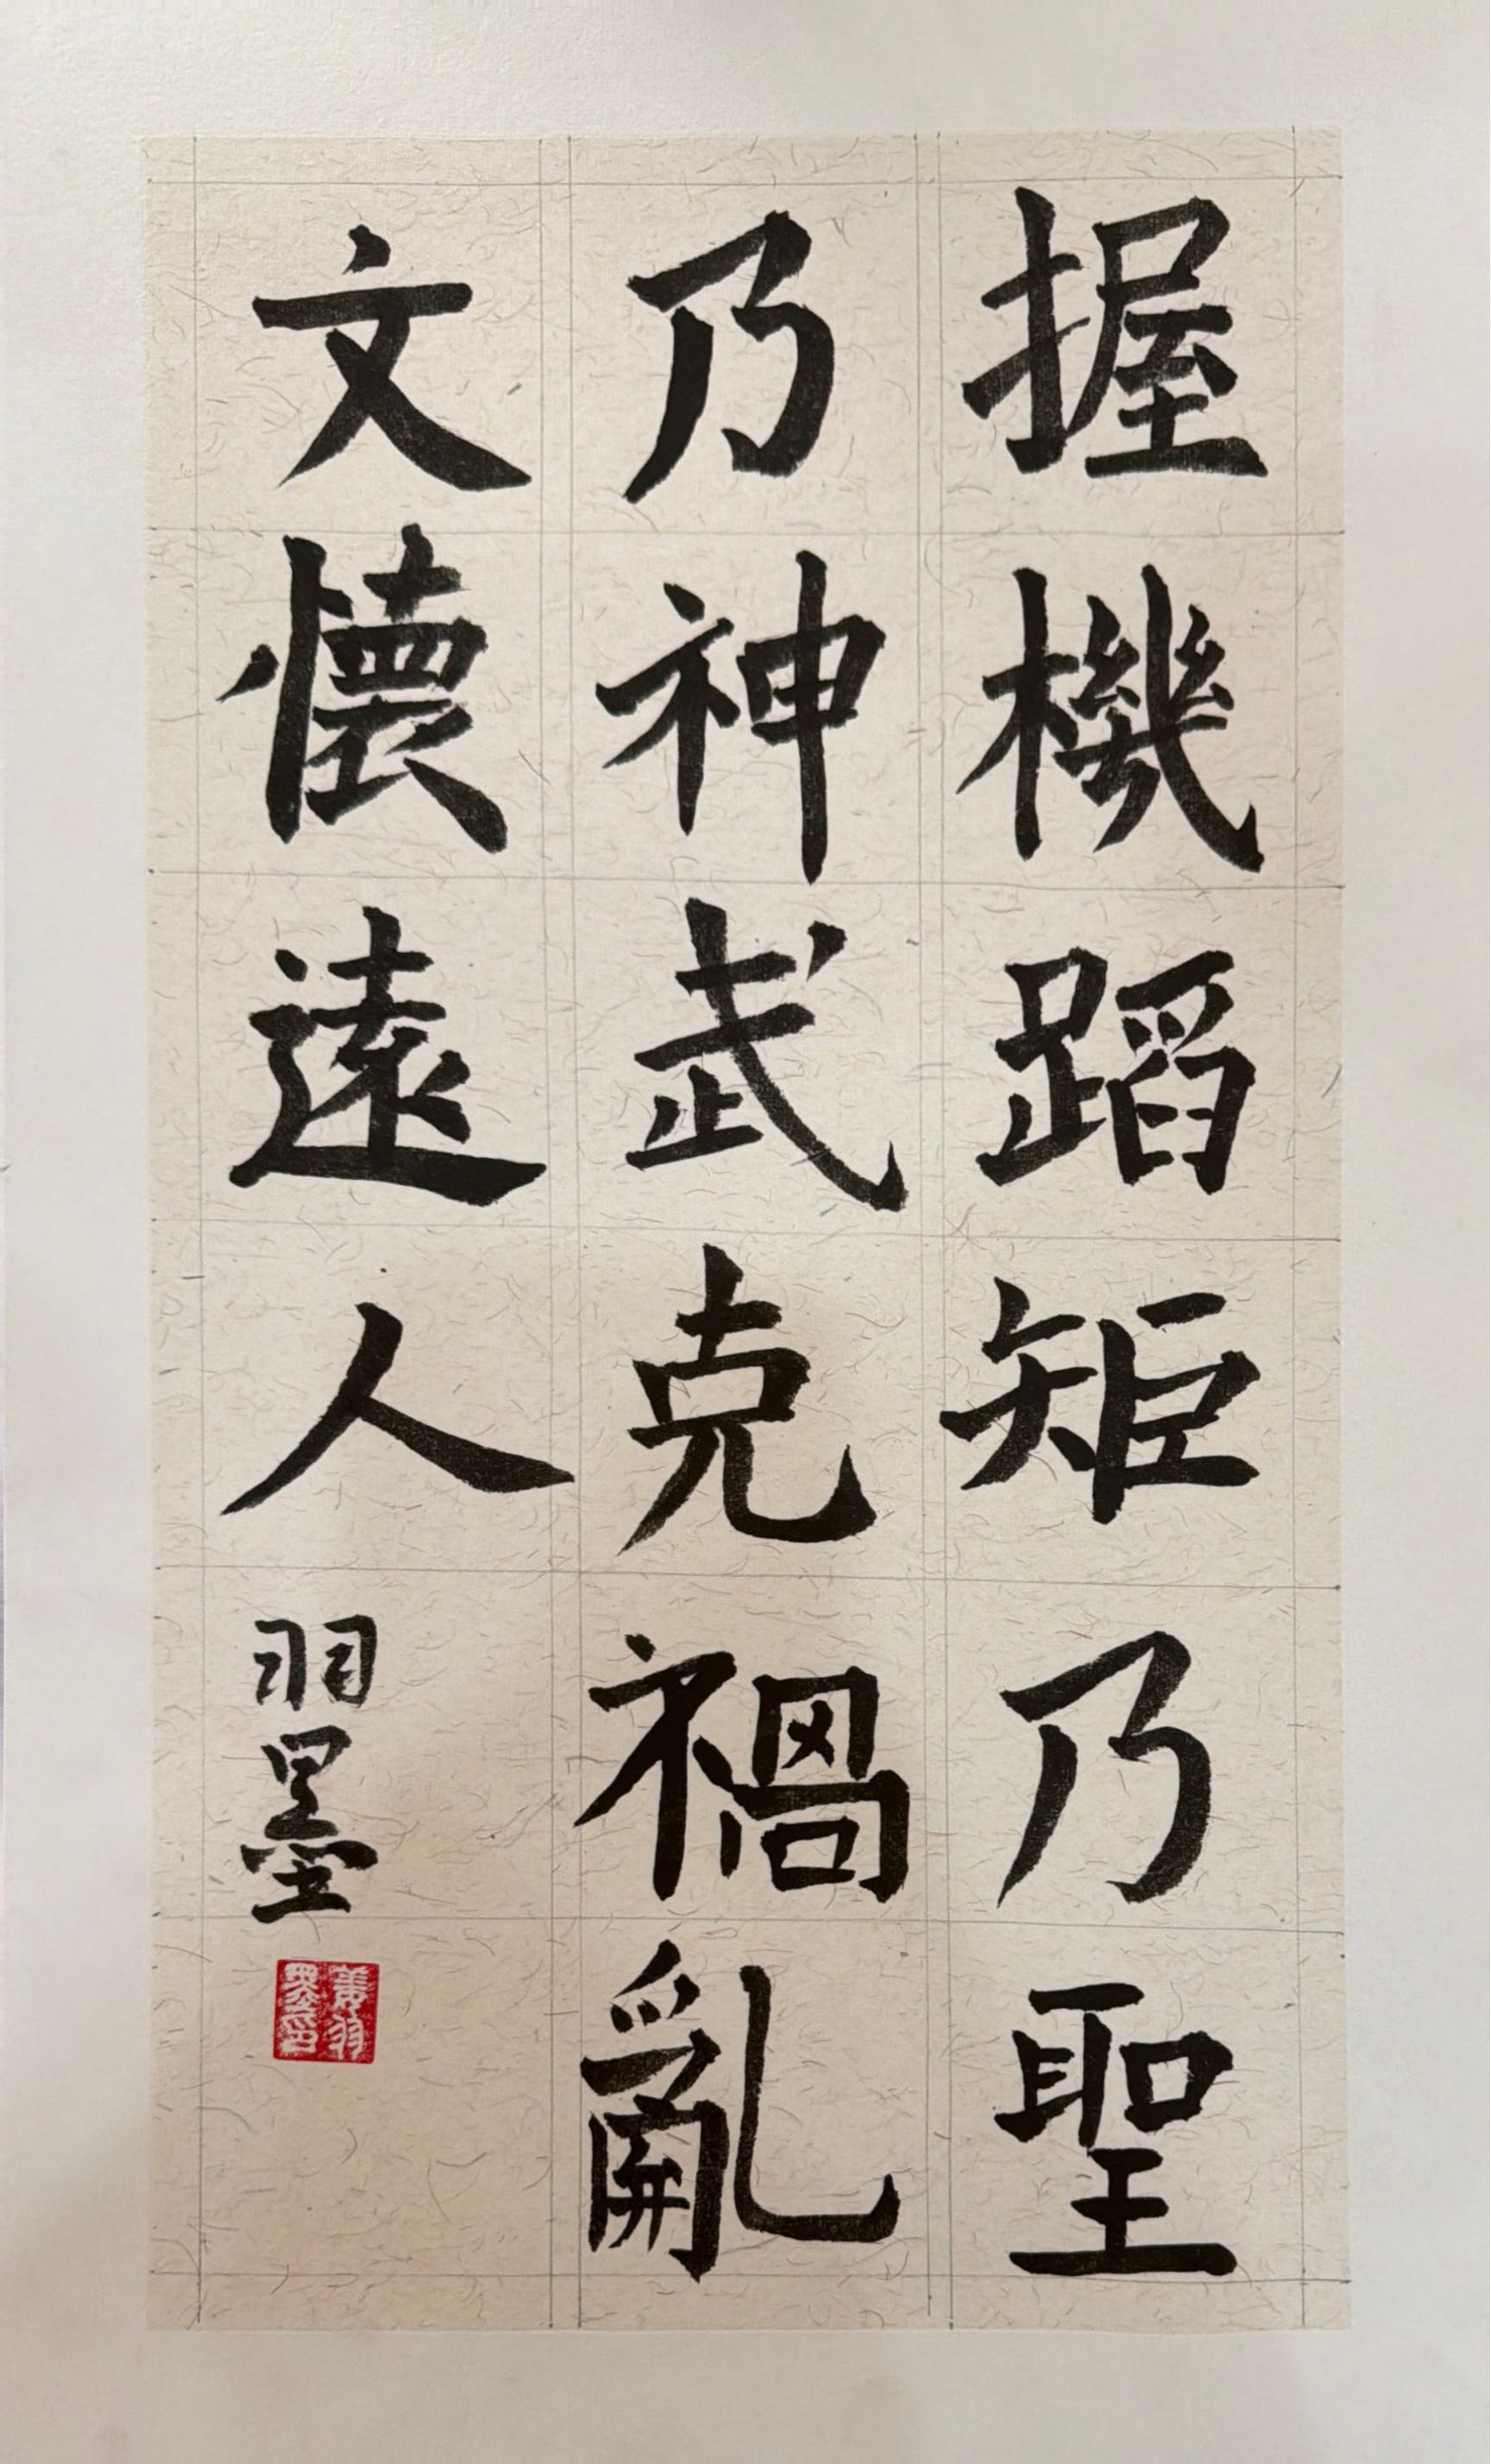 握機蹈矩乃聖
乃神武克禍亂
文懷遠人
羽墨